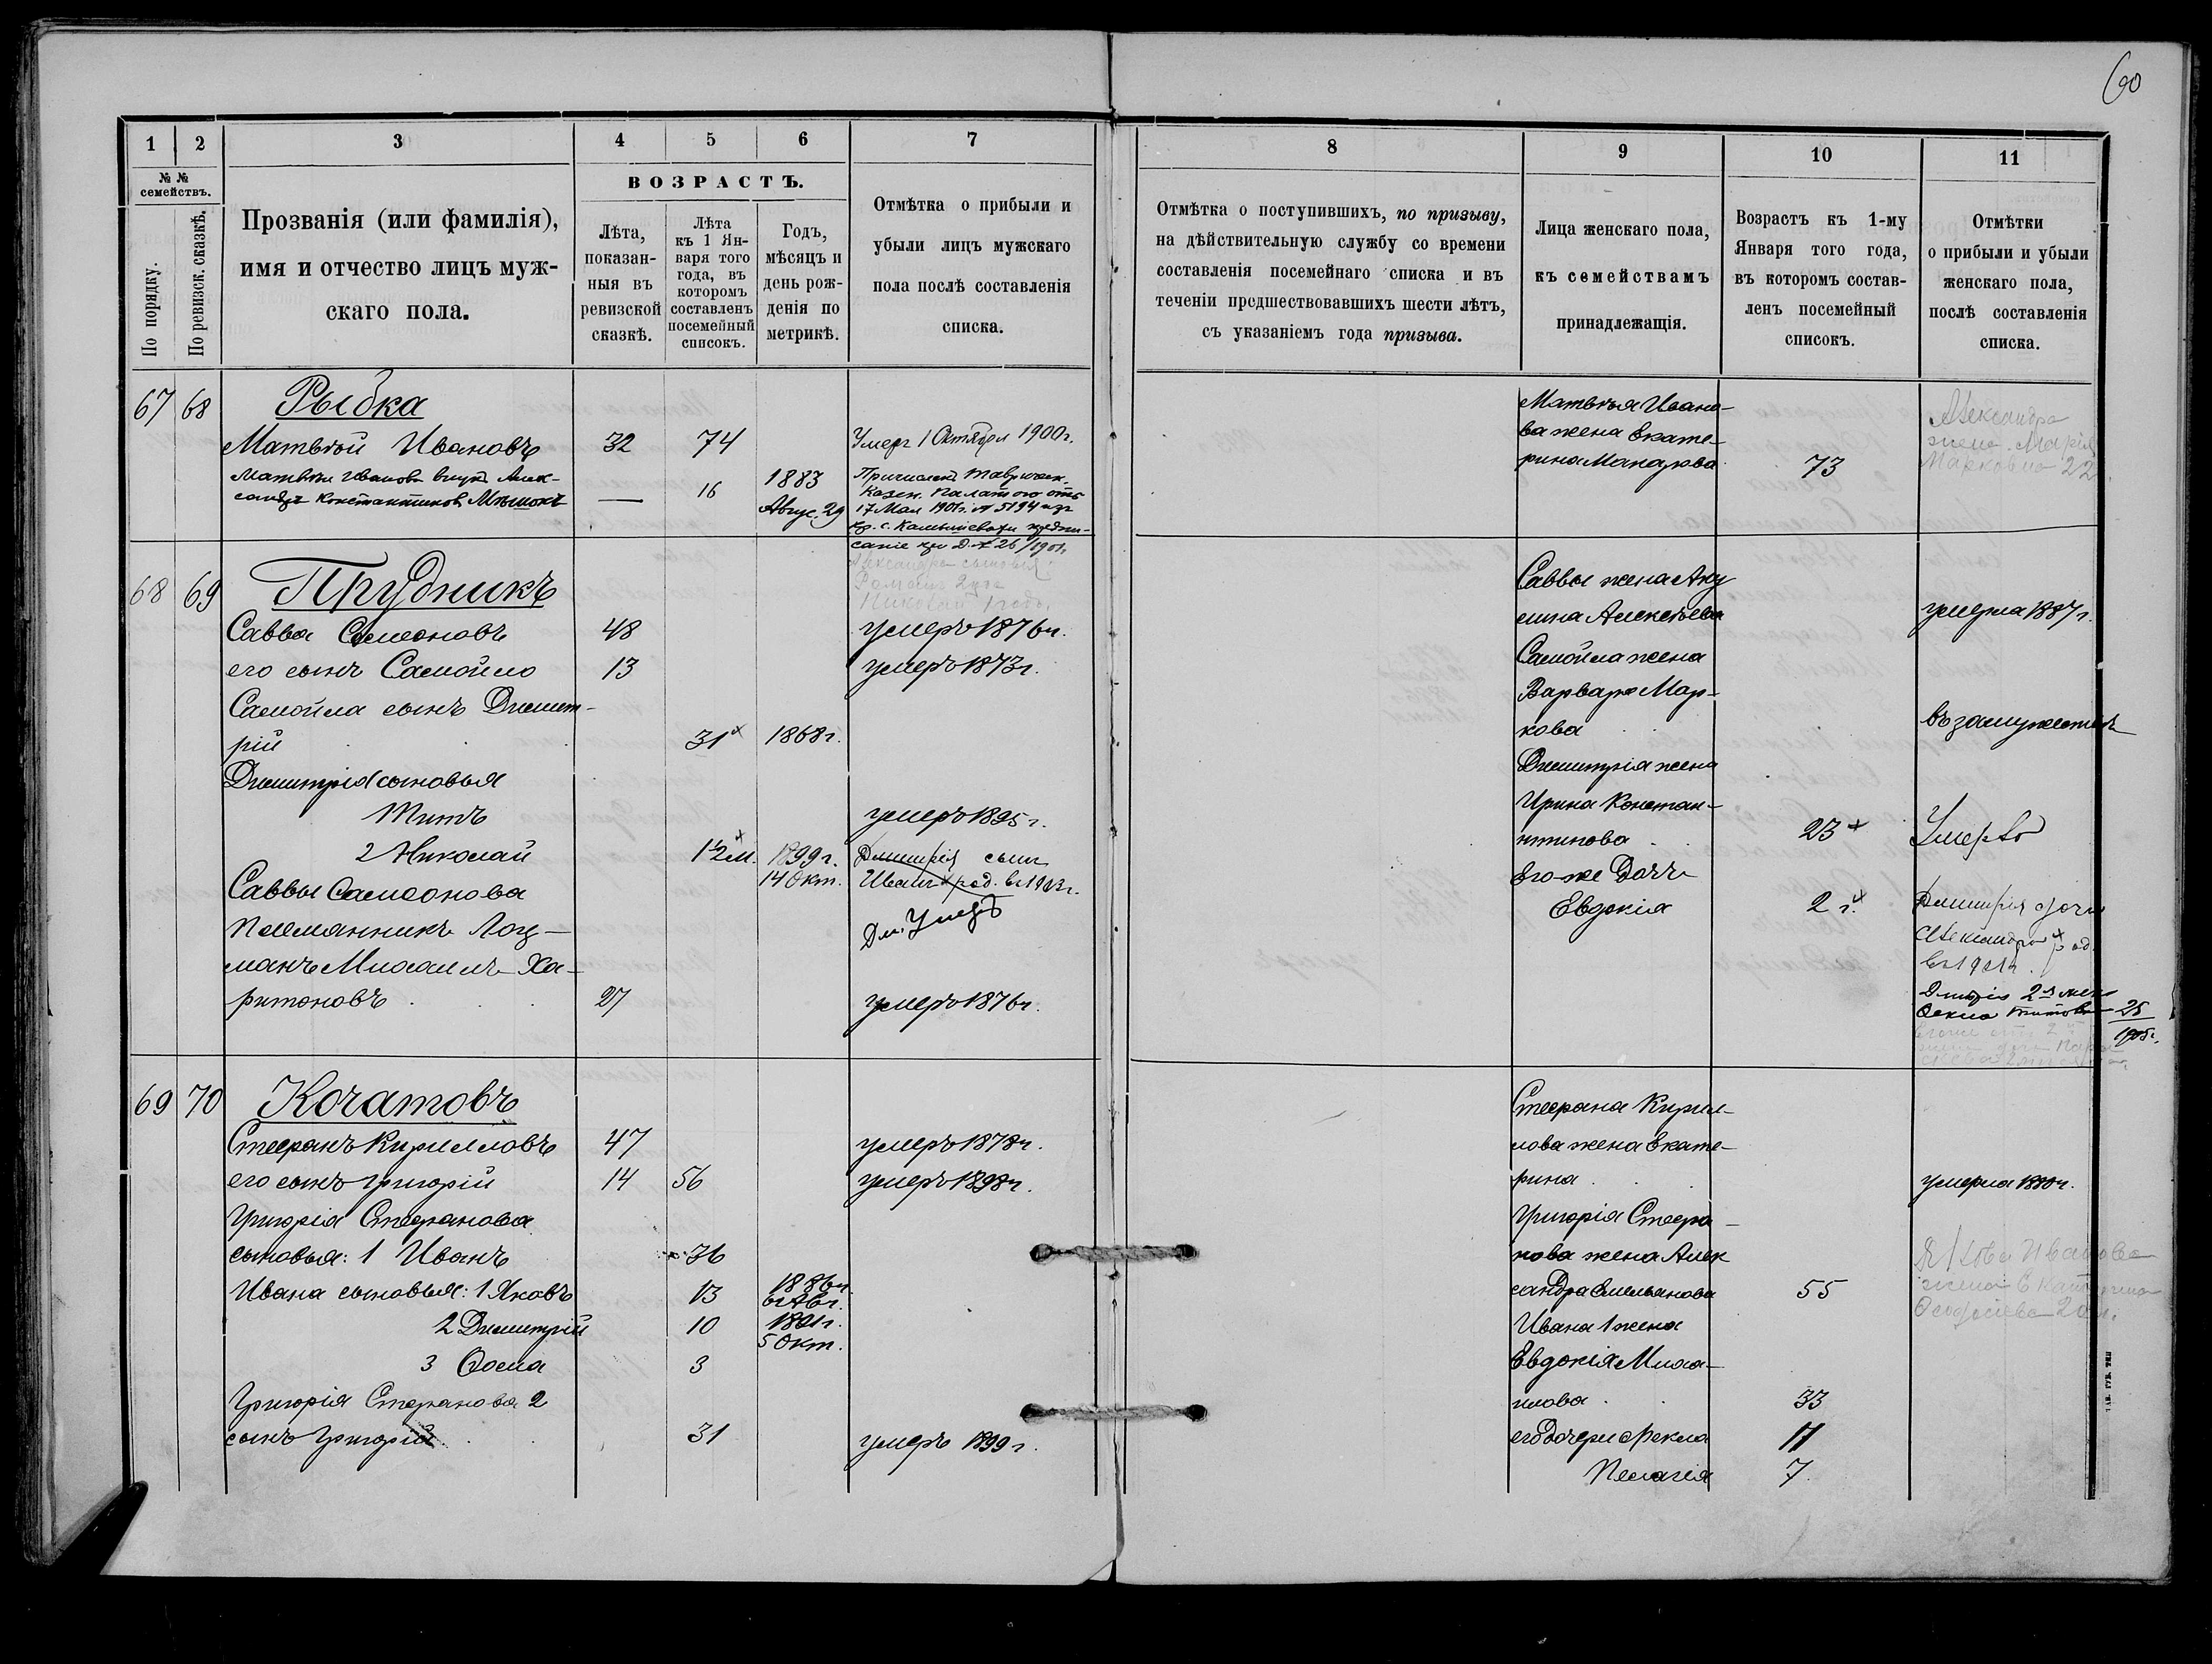 60
1 2 3 4 5 6 7
№ № семействъ.
По порядку.
По ревизск. сказкѣ.
Прозванія (или фамилія),
имя и отчество лицъ муж-
скаго пола.
ВОЗРАСТЪ.
Лѣта,
показан-
ныя въ
ревизской
сказкѣ.
Лѣта
къ 1 Ян-
варя того
года, въ
которомъ
составленъ
посемейный
списокъ.
Годъ,
мѣсяцъ и
день рож-
денія по
метрикѣ.
Отмѣтка о прибыли и
убыли лицъ мужскаго
пола послѣ составленія
списка.
67 68 Рыбка
Матвѣй Ивановъ 32 74 Умеръ 1 Октября 1900г.
Матвѣя Иванова внукъ Алек-
сандръ Константиновъ Мѣшокъ — 16 1883
Авгус. 29
Причисленъ Тавричес.
Казен. Палатою отъ
17 Мая 1901г. № 5194 изъ
с. Камышеваха предпи-
саніе при Д. № 26/1901г.
Александра сыновья:
Романъ 2 года
Николай 1 годъ
68 69 Прудникъ
Савва Самсоновъ 48 умеръ 1876г.
его сынъ Самойло 13 умеръ 1873г.
Самойла сынъ Димит-
рій 31 1868г.
Димитрія сыновья
Титъ умеръ 1895г.
2 Николай 1 2м. 1899г.
14 Окт.
Дмитрія сынъ
Иванъ род. въ 1903г.
Дм. Умеръ
Саввы Самсонова
племянникъ Лоц-
манъ Михаилъ Ха-
ритоновъ 27 умеръ 1876г.
69 70 Кочатовъ
Стефанъ Кирилловъ 47 умеръ 1878г.
его сынъ Григорій 14 56 умеръ 1898г.
Григорія Стефанова
сыновья: 1 Иванъ 36
Ивана сыновья: 1 Яковъ 13 1886г.
2 Димитрій 10
5 Окт.
3 Ѳома 3
Григорія Стефанова 2
сынъ Григорій 31 умеръ 1899г.
8 9 10 11
Отмѣтка о поступившихъ, по призыву,
на дѣйствительную службу со времени
составленія посемейнаго списка и въ
теченіи предшествовавшихъ шести лѣтъ,
съ указаніемъ года призыва.
Лица женскаго пола,
къ семействамъ
принадлежащія.
Возрастъ къ 1-му
Января того года,
въ которомъ состав-
ленъ посемейный
списокъ.
Отмѣтки
о прибыли и убыли
женскаго пола,
послѣ составленія
списка.
Матвѣя Ивано-
ва жена Екате-
рина Макарова 73
Александра
жена Марія
Маркова 22
Саввы жена Аку
лина Алексѣева умерла 1887г.
Самойла жена
Варвара Мар-
кова въ замужествѣ
Димитрія жена
Ирина Констан-
тинова 23 Умерла
Его-же Дочь
Евдокія 2г.
Дмитрія дочь
Александра род.
въ 1901г.
Дмитрія 2я жена
Ѳекла Титова 25
1905г.
Стефана Кирил-
лова жена Екате-
рина умерла 1880г.
Григорія Стефа-
нова жена Алек
сандра Емельянова 55
Якова Иванова
жена Екатерина
20л.
Ивана 1 жена
Евдокія Михаи-
лова 33
его дочери Ѳекла 11
Пелагія 7